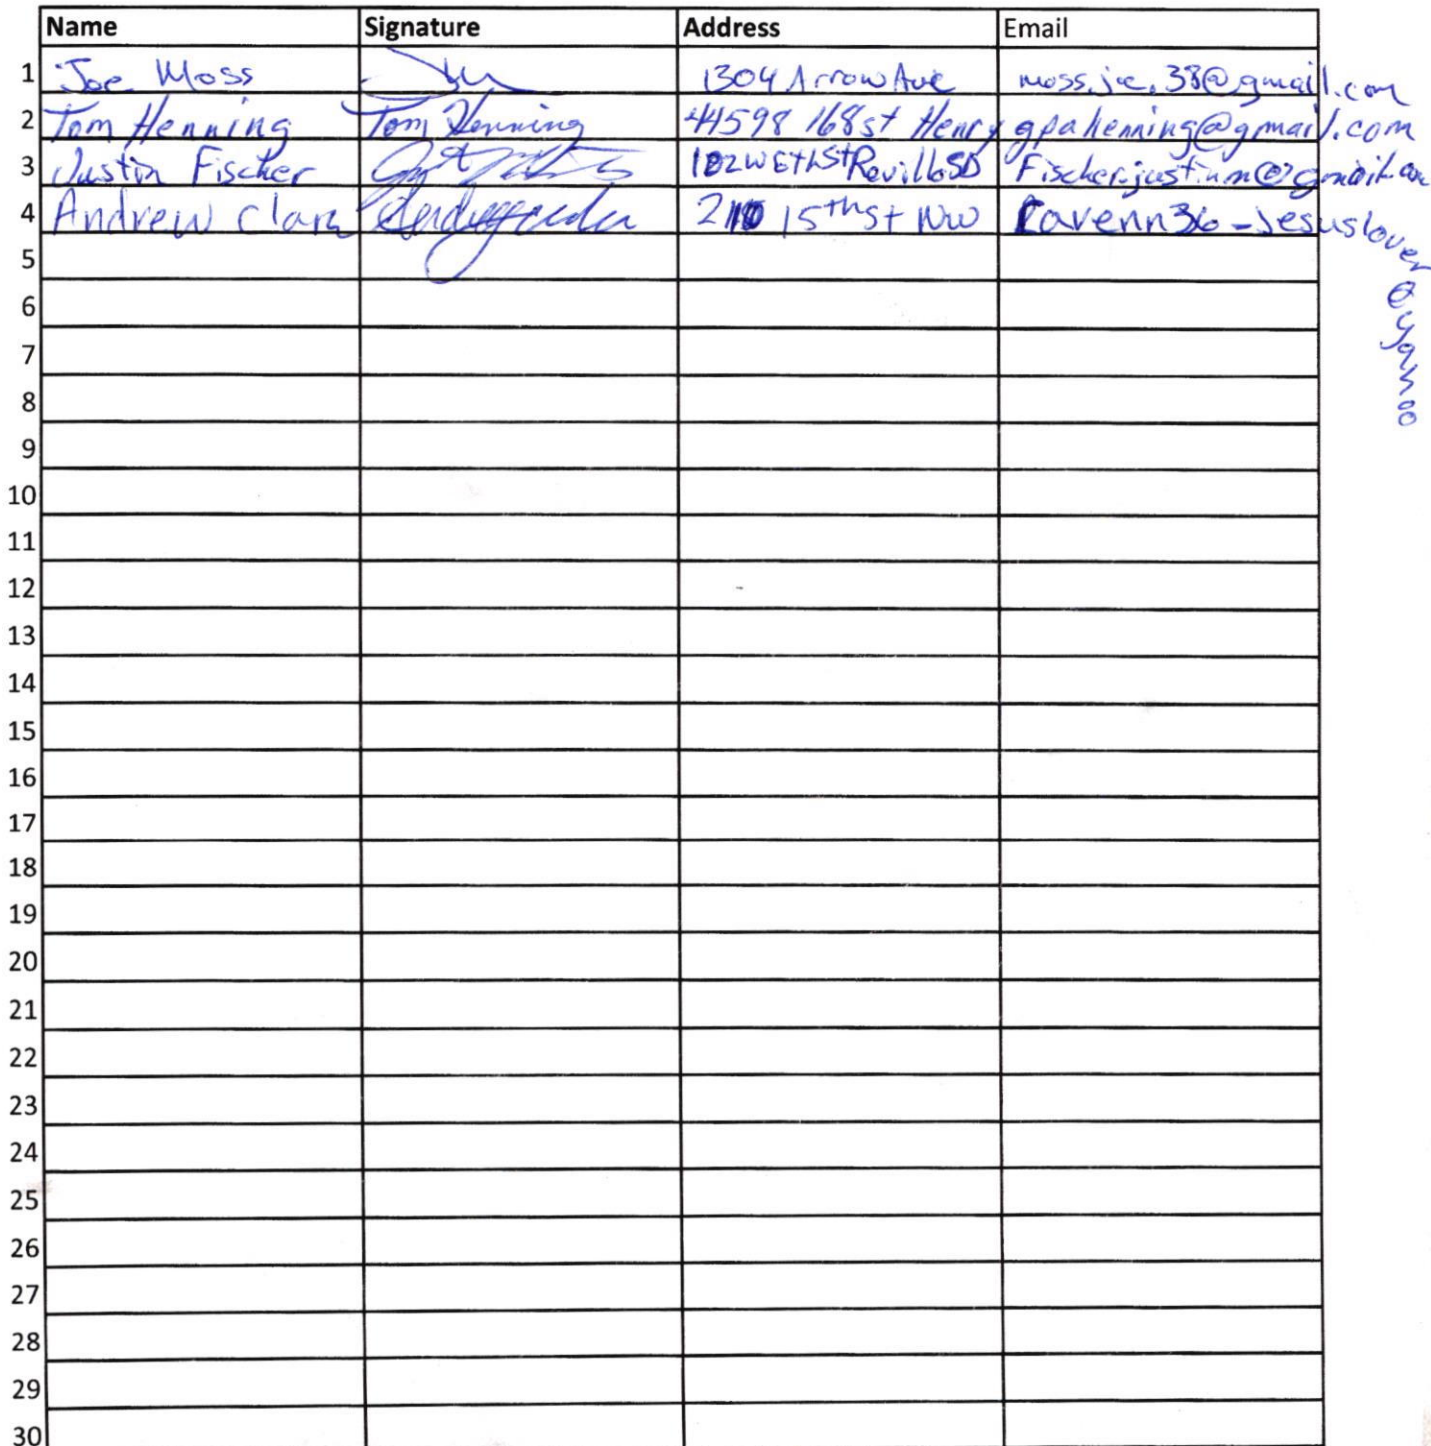 Name Signature Address Email
1 Joe Moss 1304 Arrow Ave moss.joe.38@gmail.com
2 Tom Henning Tom Henning 44598 168 st Henry gpahenning@gmail.com
3 Justin Fischer Revillo SD
4 Andrew Clark 15th St NW Ravenn36-Jesuslover@yahoo
5
6
7
8
9
10
11
12
13
14
15
16
17
18
19
20
21
22
23
24
25
26
27
28
29
30